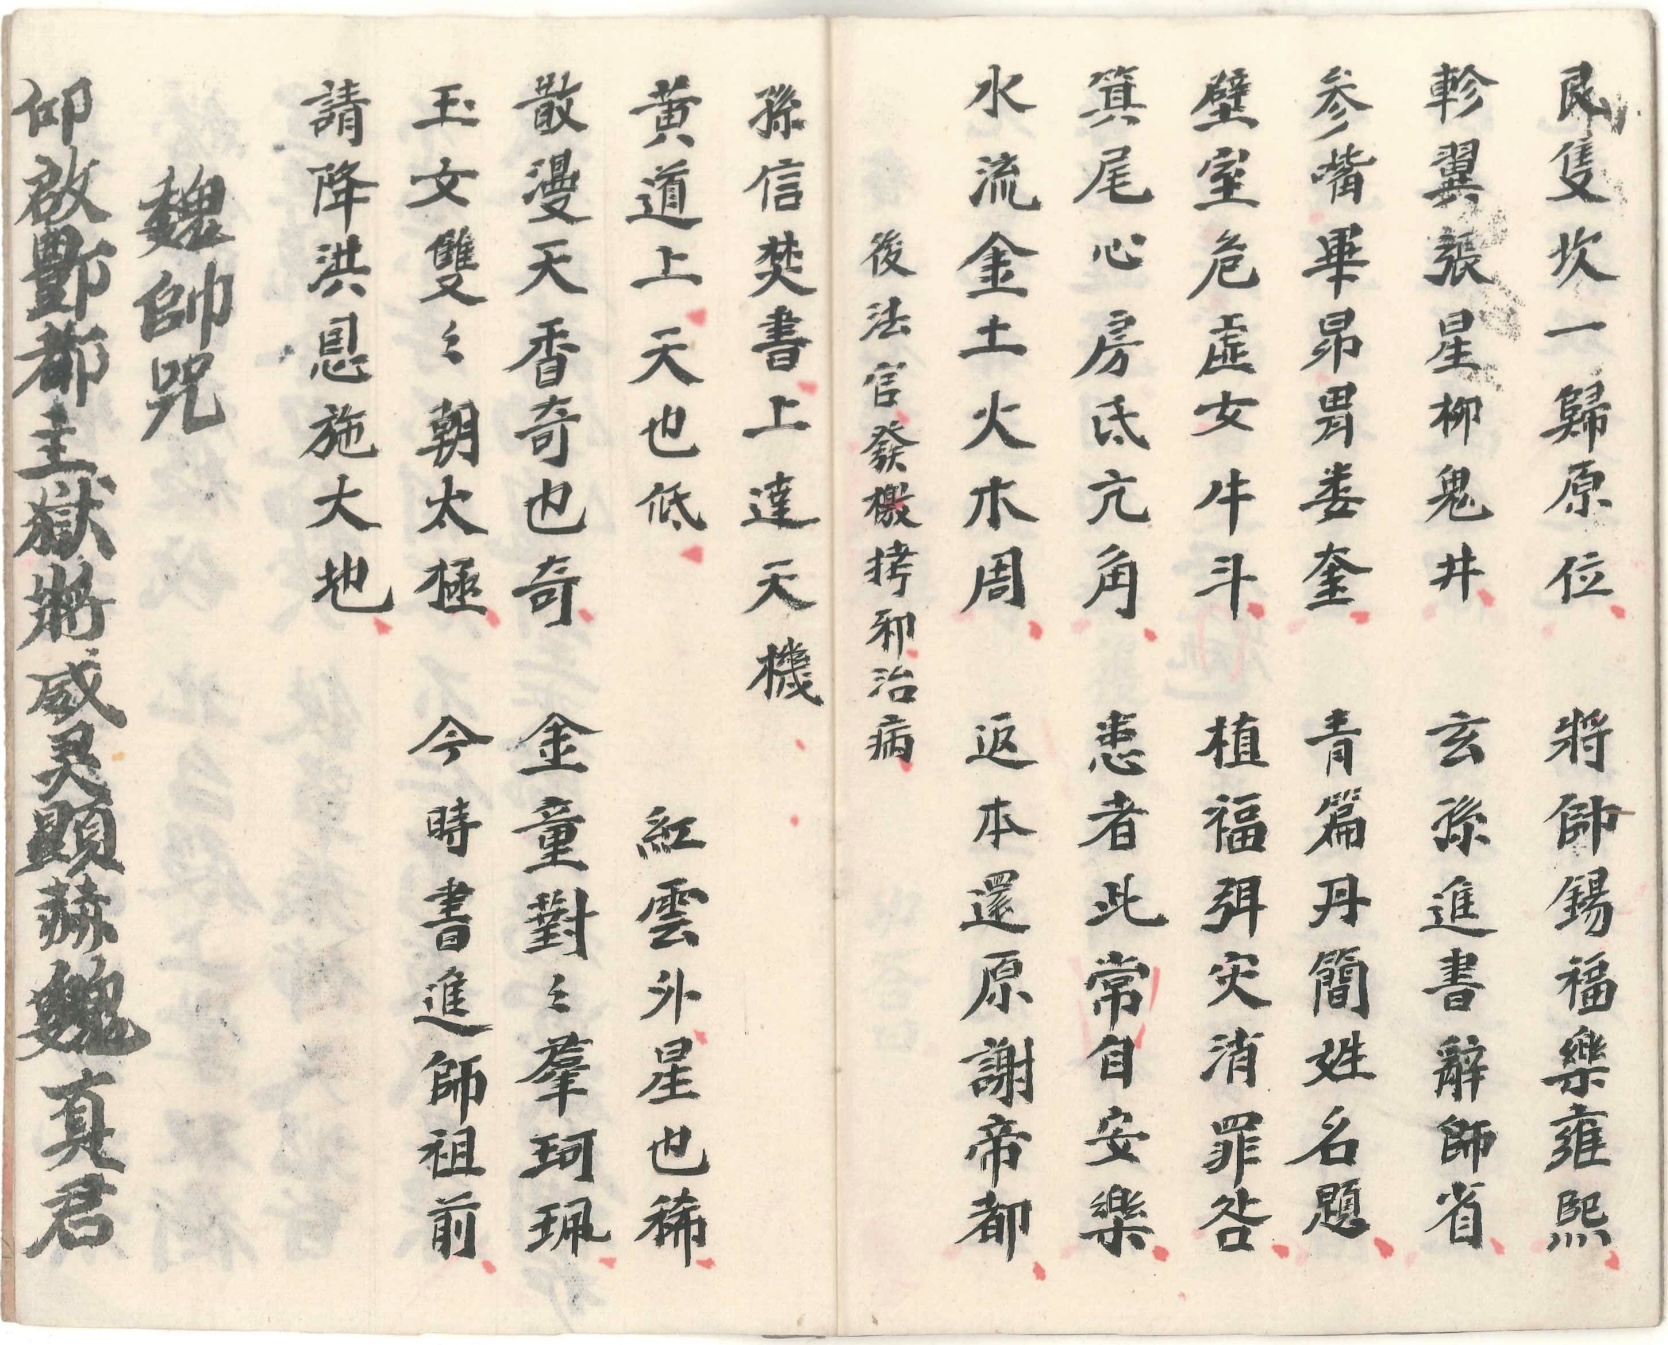 艮隻坎一歸原位　將帥錫福樂雍熙
軫翼張星柳鬼井　玄孫進書辭師省
参嘴畢昴胃娄奎　青篇丹簡姓名題
壁室危虛女牛斗　植福弭灾消罪咎
箕尾心房氐亢角　患者此常自安樂
水流金土火木周　返本還原謝帝都
後法官發檄拷邪治病
孫信焚書上達天機
黄道上天也低　紅雲外星也稀
散漫天香奇也奇　金童對〻羣珂珮
玉女雙〻朝太極　今時書進師祖前
請降洪恩施大地
魏帥咒
仰啟酆都主獄將威灵顯赫魏真君